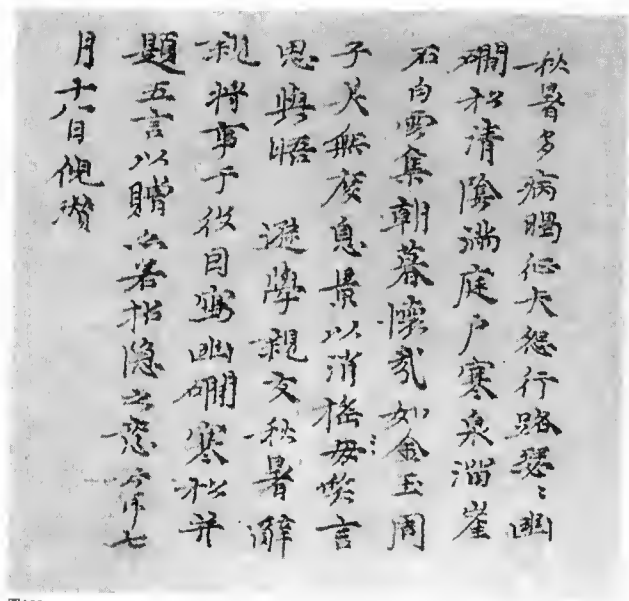 秋暑多病暍征夫怨行路瑟〻幽
磵松清陰滿庭戶寒泉溜崖
石白雲集朝暮懷哉如金玉周
子美無度息景以消搖毋咲言
思與晤 遜學親友秋暑辭
親將事于役因寫幽磵寒松并
題五言以贈亦若招隱之意云耳七
月十八日倪瓚